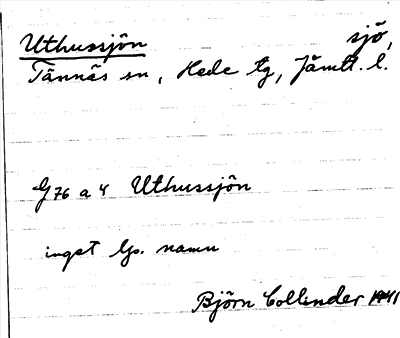 Uthussjön sjö,
Tännäs sn, Hede tg, Jämtl. l.
G 76 a 4 Uthussjön
inget lp. namn
Björn Collinder 1941